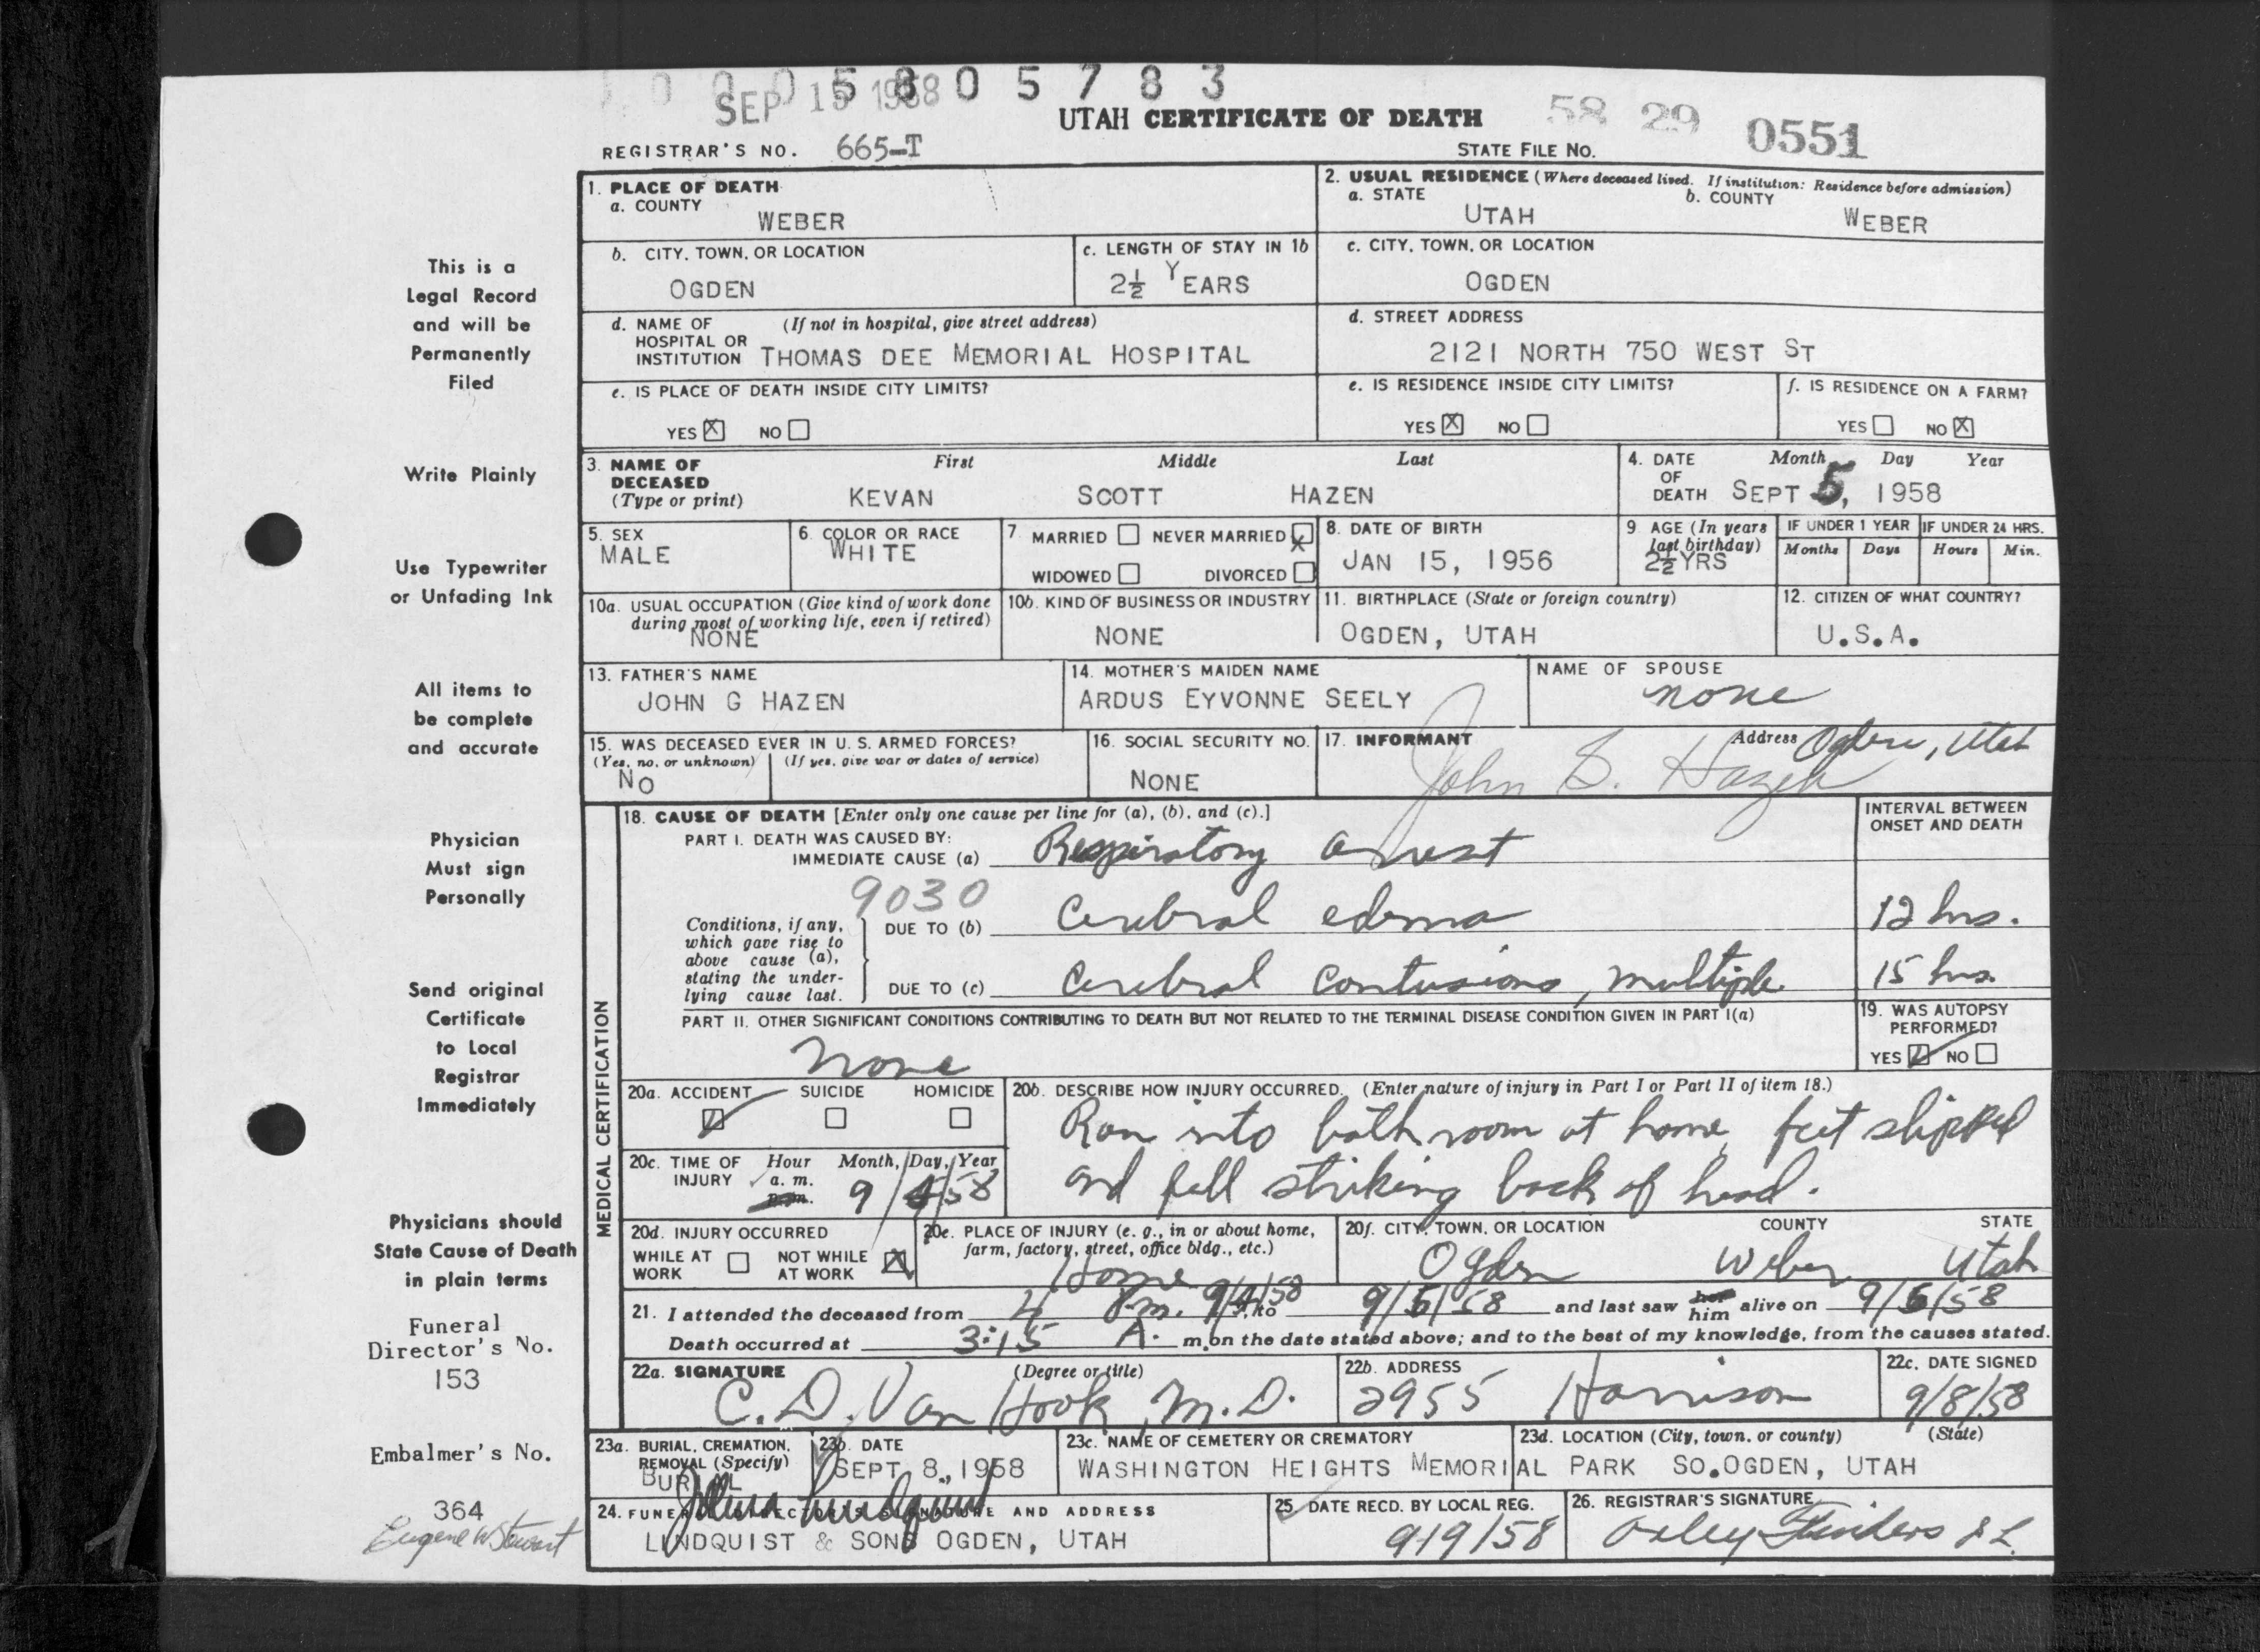 1 0 0 0 5 8 0 5 7 8 3
SEP 15 1958
UTAH CERTIFICATE OF DEATH
58 29 0551
REGISTRAR'S NO. 665-T
STATE FILE NO.
1. PLACE OF DEATH
a. COUNTY
WEBER
2. USUAL RESIDENCE (Where deceased lived. If institution: Residence before admission)
a. STATE
UTAH
b. COUNTY
WEBER
b. CITY, TOWN, OR LOCATION
OGDEN
c. LENGTH OF STAY IN 1b
2½ YEARS
c. CITY, TOWN, OR LOCATION
OGDEN
d. NAME OF HOSPITAL OR INSTITUTION
(If not in hospital, give street address)
THOMAS DEE MEMORIAL HOSPITAL
d. STREET ADDRESS
2121 NORTH 750 WEST ST
e. IS PLACE OF DEATH INSIDE CITY LIMITS?
YES X NO
e. IS RESIDENCE INSIDE CITY LIMITS?
YES X NO
f. IS RESIDENCE ON A FARM?
YES NO X
3. NAME OF DECEASED
(Type or print)
First Middle Last
KEVAN SCOTT HAZEN
4. DATE OF DEATH
Month Day Year
SEPT 5, 1958
5. SEX
MALE
6. COLOR OR RACE
WHITE
7. MARRIED NEVER MARRIED X
WIDOWED DIVORCED
8. DATE OF BIRTH
JAN 15, 1956
9. AGE (In years last birthday)
2½ YRS
IF UNDER 1 YEAR
Months Days
IF UNDER 24 HRS.
Hours Min.
10a. USUAL OCCUPATION (Give kind of work done during most of working life, even if retired)
NONE
10b. KIND OF BUSINESS OR INDUSTRY
NONE
11. BIRTHPLACE (State or foreign country)
OGDEN, UTAH
12. CITIZEN OF WHAT COUNTRY?
U.S.A.
13. FATHER'S NAME
JOHN G HAZEN
14. MOTHER'S MAIDEN NAME
ARDUS EYVONNE SEELY
NAME OF SPOUSE
none
15. WAS DECEASED EVER IN U. S. ARMED FORCES?
(Yes, no, or unknown) (If yes, give war or dates of service)
NO
16. SOCIAL SECURITY NO.
NONE
17. INFORMANT
John G. Hazen
Address Ogden, Utah
MEDICAL CERTIFICATION
18. CAUSE OF DEATH [Enter only one cause per line for (a), (b), and (c).]
INTERVAL BETWEEN ONSET AND DEATH
PART I. DEATH WAS CAUSED BY:
IMMEDIATE CAUSE (a) Respiratory arrest
9030
Conditions, if any, which gave rise to above cause (a), stating the underlying cause last.
DUE TO (b) Cerebral edema 12 hrs.
DUE TO (c) Cerebral contusions, multiple 15 hrs.
PART II. OTHER SIGNIFICANT CONDITIONS CONTRIBUTING TO DEATH BUT NOT RELATED TO THE TERMINAL DISEASE CONDITION GIVEN IN PART I(a)
None
19. WAS AUTOPSY PERFORMED?
YES NO
20a. ACCIDENT SUICIDE HOMICIDE
20b. DESCRIBE HOW INJURY OCCURRED. (Enter nature of injury in Part I or Part II of item 18.)
Ran into bathroom at home, feet slipped
and fell striking back of head.
20c. TIME OF INJURY
Hour Month, Day, Year
a. m.
p. m.
9/4/58
20d. INJURY OCCURRED
WHILE AT WORK NOT WHILE AT WORK X
20e. PLACE OF INJURY (e. g., in or about home, farm, factory, street, office bldg., etc.)
Home
20f. CITY, TOWN, OR LOCATION COUNTY STATE
Ogden Weber Utah
21. I attended the deceased from 4 Pm. 9/4/58, to 9/5/58 and last saw her him alive on 9/5/58
Death occurred at 3:15 A. m. on the date stated above; and to the best of my knowledge, from the causes stated.
22a. SIGNATURE (Degree or title)
C. D. Van Hook, M.D.
22b. ADDRESS
2955 Harrison
22c. DATE SIGNED
9/8/58
23a. BURIAL, CREMATION, REMOVAL (Specify)
BURIAL
23b. DATE
SEPT 8, 1958
23c. NAME OF CEMETERY OR CREMATORY
WASHINGTON HEIGHTS MEMORIAL PARK
23d. LOCATION (City, town, or county) (State)
SO. OGDEN, UTAH
24. FUNERAL DIRECTOR'S SIGNATURE AND ADDRESS
LINDQUIST & SONS OGDEN, UTAH
25. DATE RECD. BY LOCAL REG.
9/9/58
26. REGISTRAR'S SIGNATURE
This is a
Legal Record
and will be
Permanently
Filed
Write Plainly
Use Typewriter
or Unfading Ink
All items to
be complete
and accurate
Physician
Must sign
Personally
Send original
Certificate
to Local
Registrar
Immediately
Physicians should
State Cause of Death
in plain terms
Funeral
Director's No.
153
Embalmer's No.
364
Eugene W Stewart